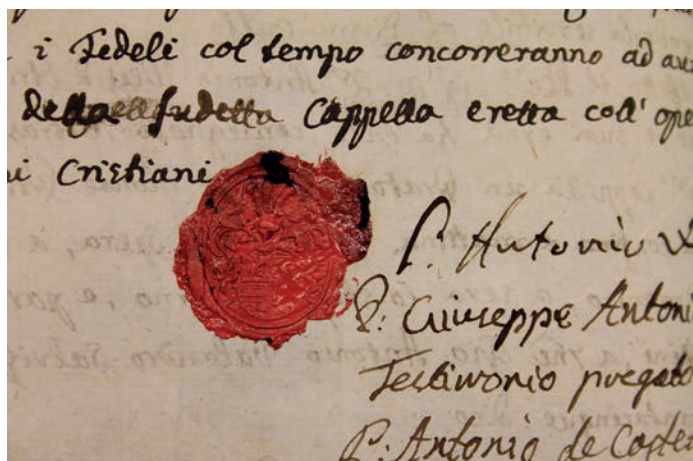 i Fedeli col tempo concorreranno ad au
della sudetta Cappella eretta coll' ope
ni Cristiani
P. Antonio
P: Giuseppe Antoni
Testimonio pregato
P. Antonio de Coste